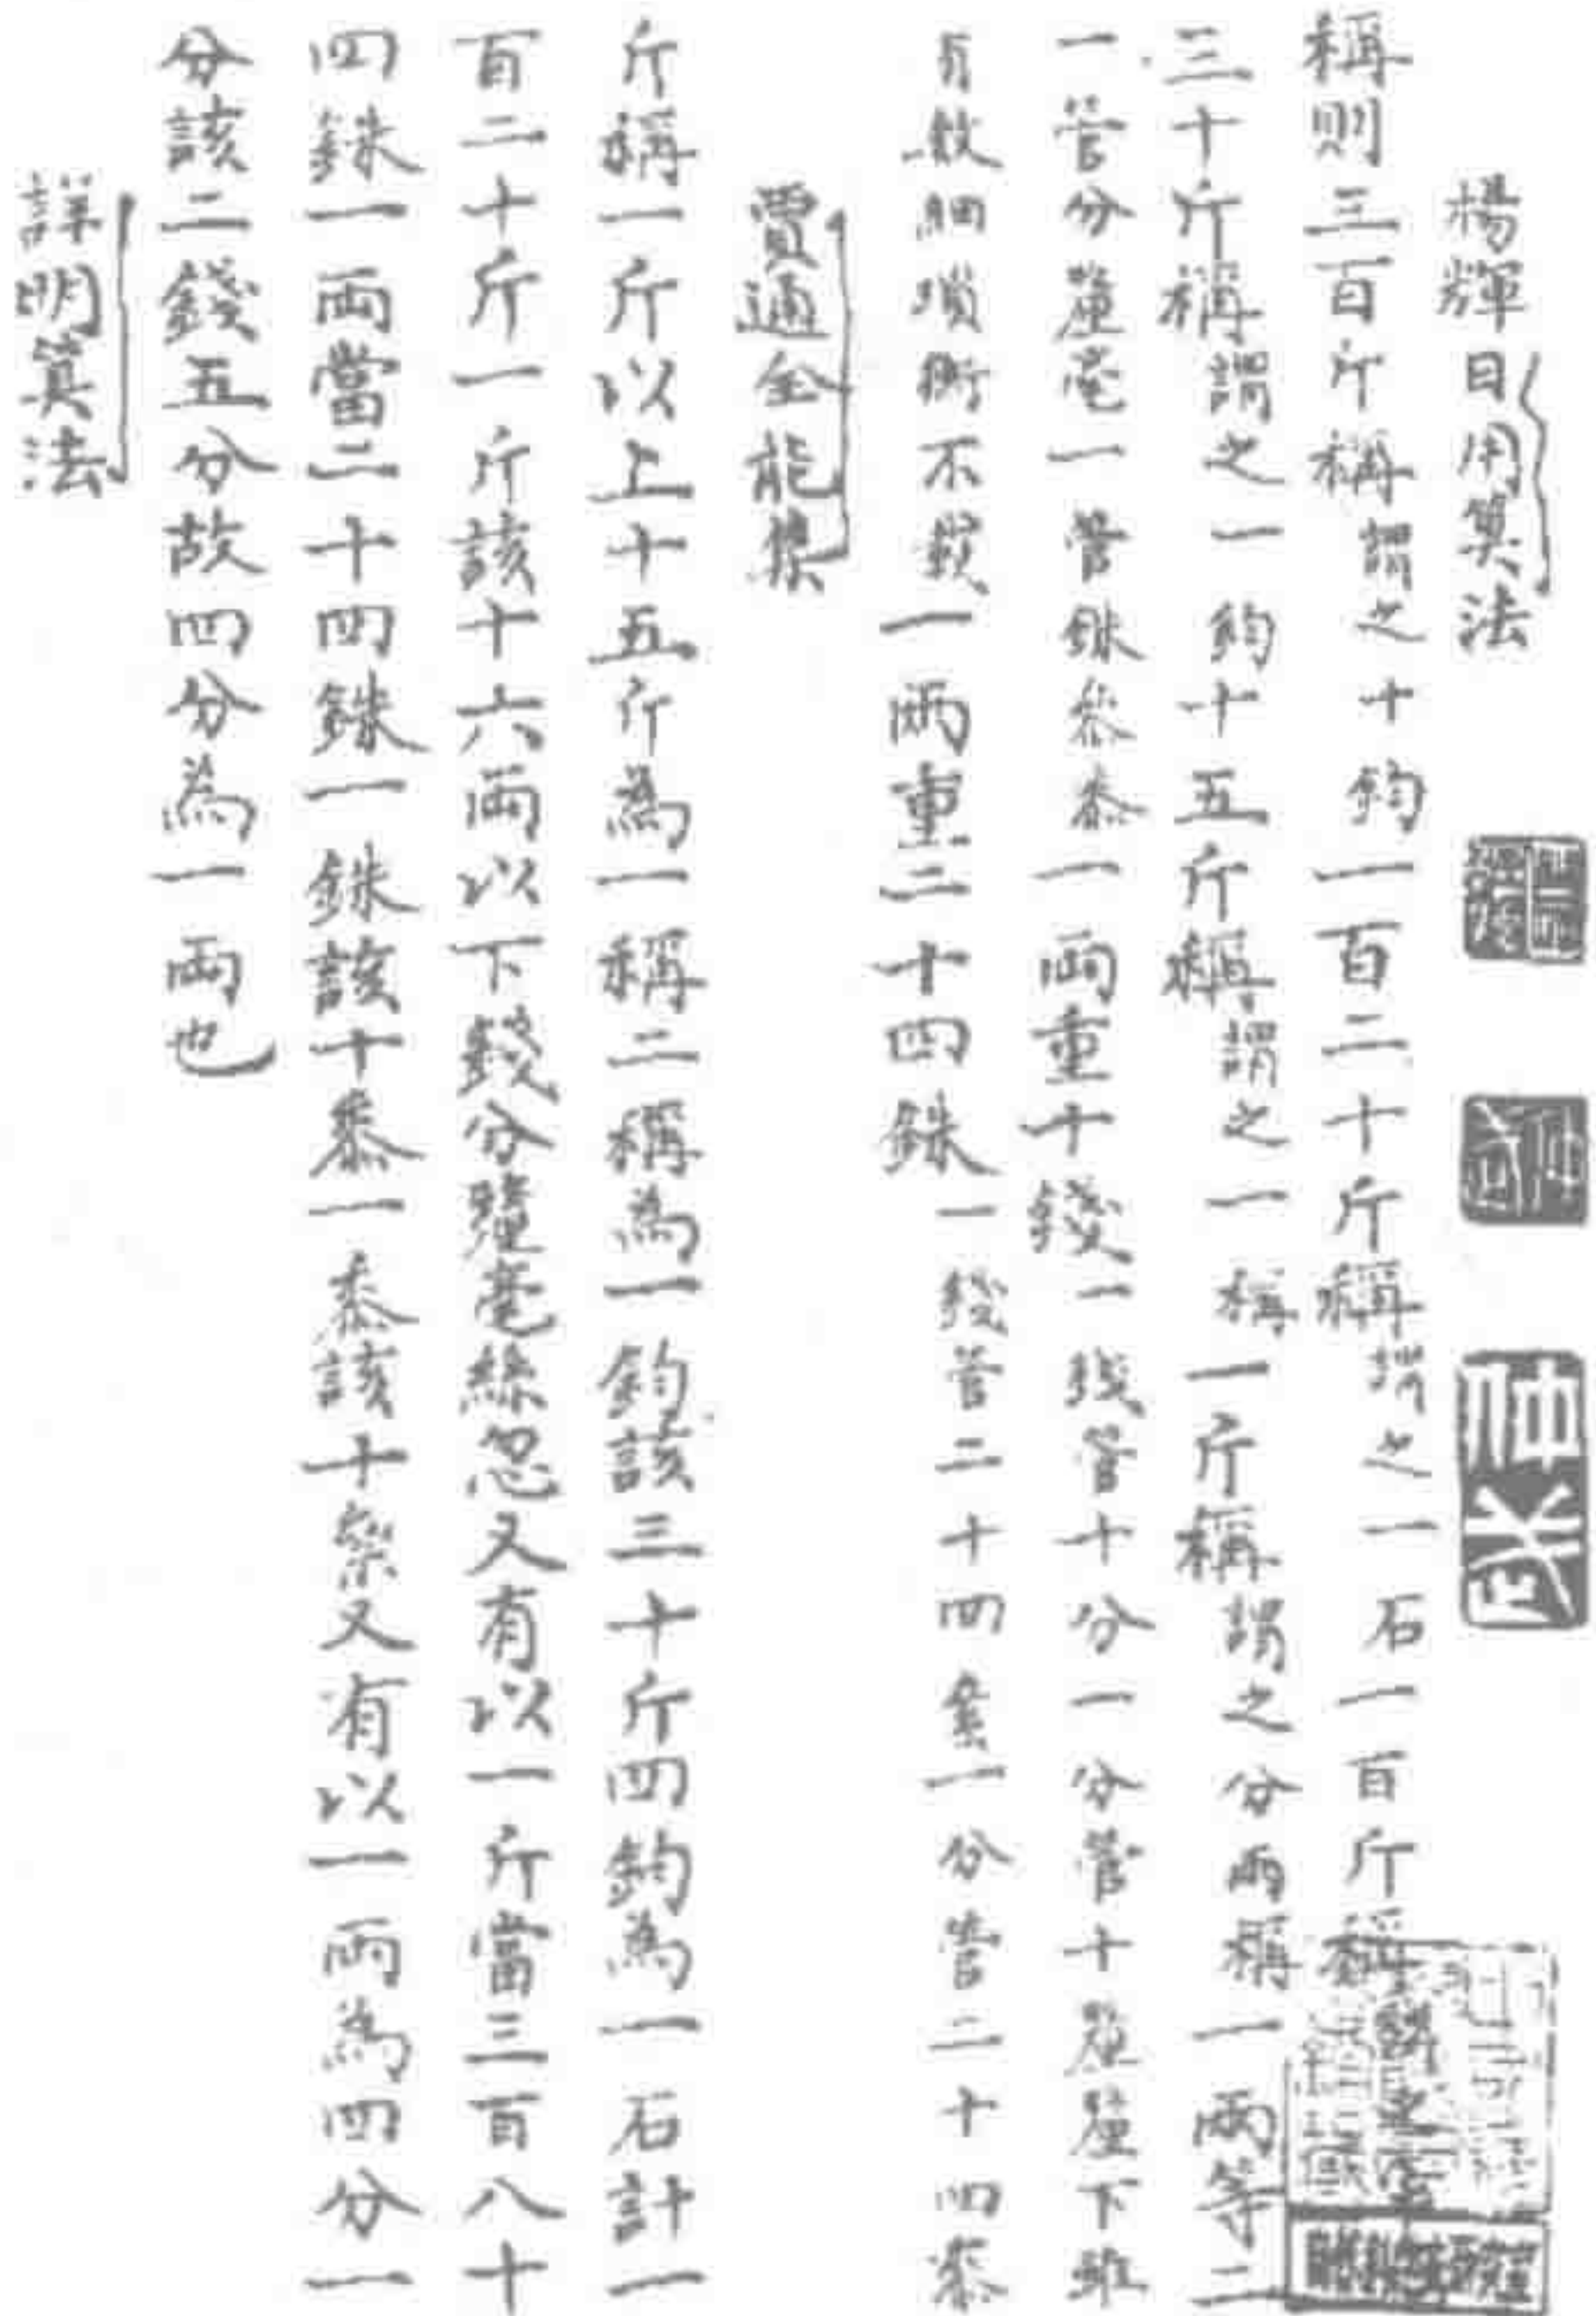 楊輝日用算法
稱則三百斤稱謂之十鈞一百二十斤稱謂之一石一百斤稱
三十斤稱謂之一鈞十五斤稱謂之一稱一斤稱謂之分兩稱一兩等二
一管分釐毫一管銖絫黍一兩重十錢一錢管十分一分管十釐釐下雖
有數細瑣衡不載一兩重二十四銖一錢管二十四絫一分管二十四黍
賈通全能集
斤稱一斤以上十五斤為一稱二稱為一鈞該三十斤四鈞為一石計一
百二十斤一斤該十六兩以下錢分釐毫絲忽又有以一斤當三百八十
四銖一兩當二十四銖一銖該十黍一黍該十絫又有以一兩為四分一
分該二錢五分故四分為一兩也
詳明算法
仲武